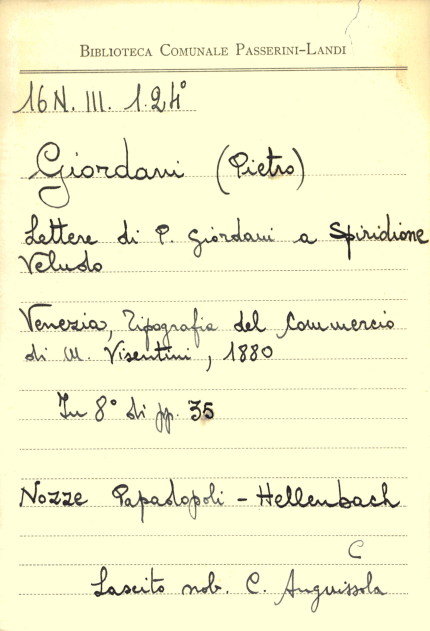 BIBLIOTECA COMUNALE PASSERINI-LANDI
16 N. III. 1.24°
Giordani (Pietro)
Lettere di P. Giordani a Spiridione
Veludo
Venezia, Tipografia del Commercio
di M. Visentini, 1880
In 8° di pp. 35
Nozze Papadopoli - Hellenbach
C
Lascito nob. C. Anguissola